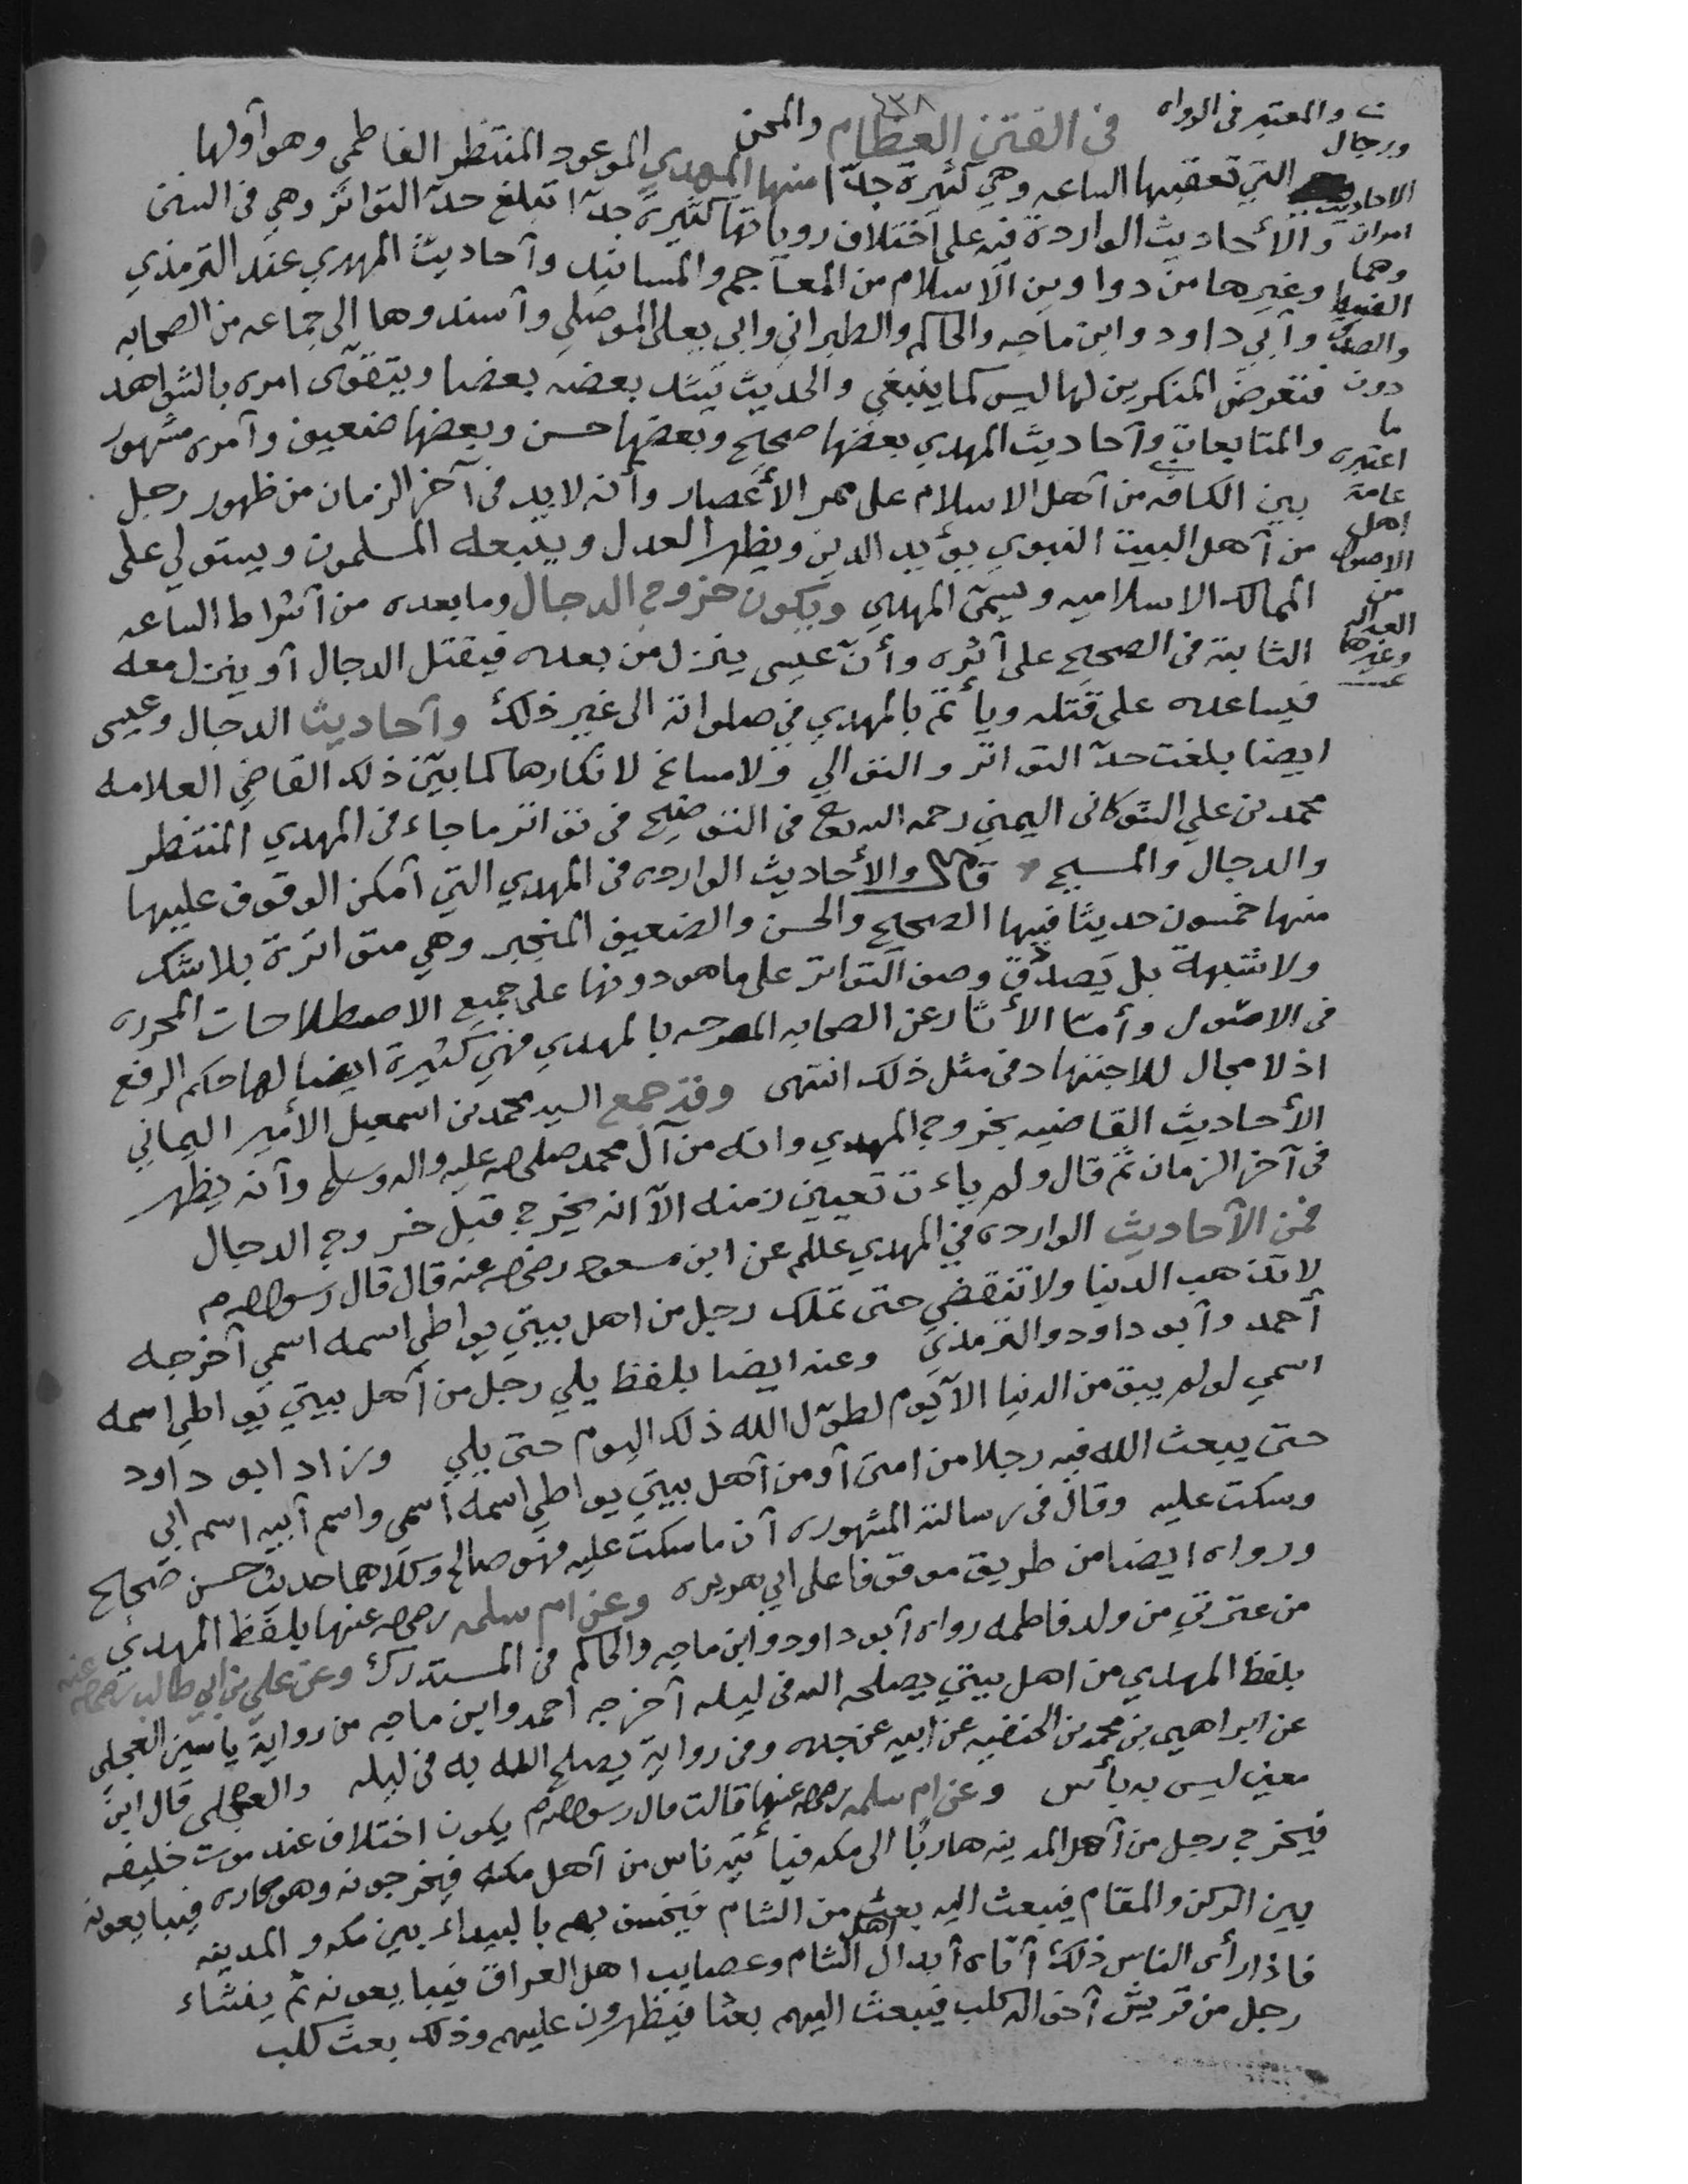 ٤٣٨
في الفتن العظام والمحن
التي تعقبها الساعه وهي كثيرة جدّا منها المهدي الموعود المنتظر الفاطمي وهو أولها
والأحاديث الواردة فيه على اختلاف رواياتها كثيرة جدّا تبلغ حدّ التواتر وهي في السنن
وغيرها من دواوين الاسلام من المعاجم والمسانيد وأحاديث المهدي عند الترمذي
وأبي داود وابن ماجه والحاكم والطبراني وابي يعلى الموصلي وأسندوها الى جماعه من الصحابه
فتعرض المنكرين لها ليس كما ينبغي والحديث يشد بعضه بعضا ويتقوّى امره بالشواهد
والمتابعات وأحاديث المهدي بعضها صحيح وبعضها حسن وبعضها ضعيف وأمره مشهور
بين الكافه من أهل الاسلام على ممر الأعصار وأنه لابد في آخر الزمان من ظهور رجل
من أهل البيت النبوي يؤيد الدين ويظهر العدل ويتبعه المسلمون ويستولي على
الممالك الاسلاميه ويسمى المهدي ويكون خروج الدجال وما بعده من أشراط الساعه
الثابتة في الصحيح على أثره وأنّ عيسى ينزل من بعده فيقتل الدجال أو ينزل معه
فيساعده على قتله ويأتمّ بالمهدي في صلواته الى غير ذلك وأحاديث الدجال وعيسى
ايضا بلغت حدّ التواتر والتوالي ولا مساغ لانكارها كما بيّن ذلك القاضي العلامه
محمد بن علي الشوكاني اليمني رحمه الله تع في التوضيح في تواتر ما جاء في المهدي المنتظر
والدجال والمسيح قال والأحاديث الوارده في المهدي التي أمكن الوقوف عليها
منها خمسون حديثا فيها الصحيح والحسن والضعيف المنجبر وهي متواترة بلا شك
ولا شبهة بل يصدق وصف التواتر على ما هو دونها على جميع الاصطلاحات المحرره
في الاصول وأمّا الأثار عن الصحابه المصرحه بالمهدي فهي كثيرة ايضا لها حكم الرفع
اذ لا مجال للاجتهاد في مثل ذلك انتهى وقد جمع السيد محمد بن اسمعيل الأمير اليماني
الأحاديث القاضيه بخروج المهدي وانه من آل محمد صلى الله عليه واله وسلم وأنه يظهر
في آخر الزمان ثم قال ولم يأت تعيين زمنه الاّ انه يخرج قبل خروج الدجال
فمن الأحاديث الوارده في المهدي علم عن ابن مسعود رضي الله عنه قال قال رسول الله م
لا تذهب الدنيا ولا تنقضي حتى تملك رجل من اهل بيتي يواطي اسمه اسمي أخرجه
أحمد وأبو داود والترمذي وعنه ايضا بلفظ يلي رجل من أهل بيتي يواطي اسمه
اسمي لو لم يبق من الدنيا الاّ يوم لطوّل الله ذلك اليوم حتى يلي وزاد ابو داود
حتى يبعث الله فيه رجلا من امتى أو من أهل بيتي يواطي اسمه اسمي واسم أبيه اسم ابي
وسكت عليه وقال في رسالته المشهوره أن ما سكت عليه فهو صالح وكلاهما حديث حسن صحيح
ورواه ايضا من طريق موقوفا على ابي هريره وعن ام سلمه رضي الله عنها بلفظ المهدي
من عترتي من ولد فاطمه رواه أبو داود وابن ماجه والحاكم في المستدرك وعن علي بن ابي طالب رضي الله عنه
بلفظ المهدي من اهل بيتي يصلحه الله في ليله أخرجه احمد وابن ماجه من رواية ياسين العجلي
عن ابراهيم بن محمد بن الحنفيه عن ابيه عن جده وفي رواية يصلح الله به في ليله والعجلي قال ابن
معين ليس به بأس وعن ام سلمه رضي الله عنها قالت قال رسول الله م يكون اختلاف عند موت خليفه
فيخرج رجل من أهل المدينه هاربًا الى مكه فيأتيه ناس من أهل مكه فيخرجونه وهو كاره فيبايعونه
بين الركن والمقام فيبعث اليه بعث من الشام فيخسف بهم بالبيداء بين مكه والمدينه
فاذا رأى الناس ذلك أتاه أبدال اهل الشام وعصايب اهل العراق فيبايعونه ثم ينشاء
رجل من قريش أخواله كلب فيبعث اليهم بعثا فيظهرون عليهم وذلك بعث كلب
والمعتبر في الرواه
ورجال
الاحاديث
امران
وهما
الضبط
والصدق
دون
ما
اعتبره
عامة
اهل
الاصول
من
العداله
وغيرها